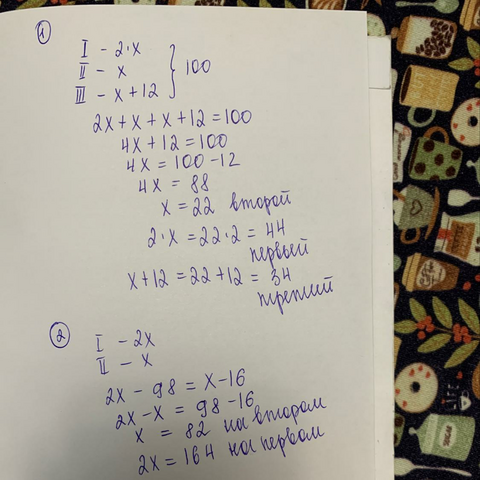 1
I - 2·x
II - x
III - x+12 } 100
2x+x+x+12=100
4x+12=100
4x=100-12
4x = 88
x=22 второй
2·x=22·2=44
первый
x+12=22+12=34
третий
2
I - 2x
II - x
2x-98=x-16
2x-x=98-16
x = 82 на втором
2x=164 на первом